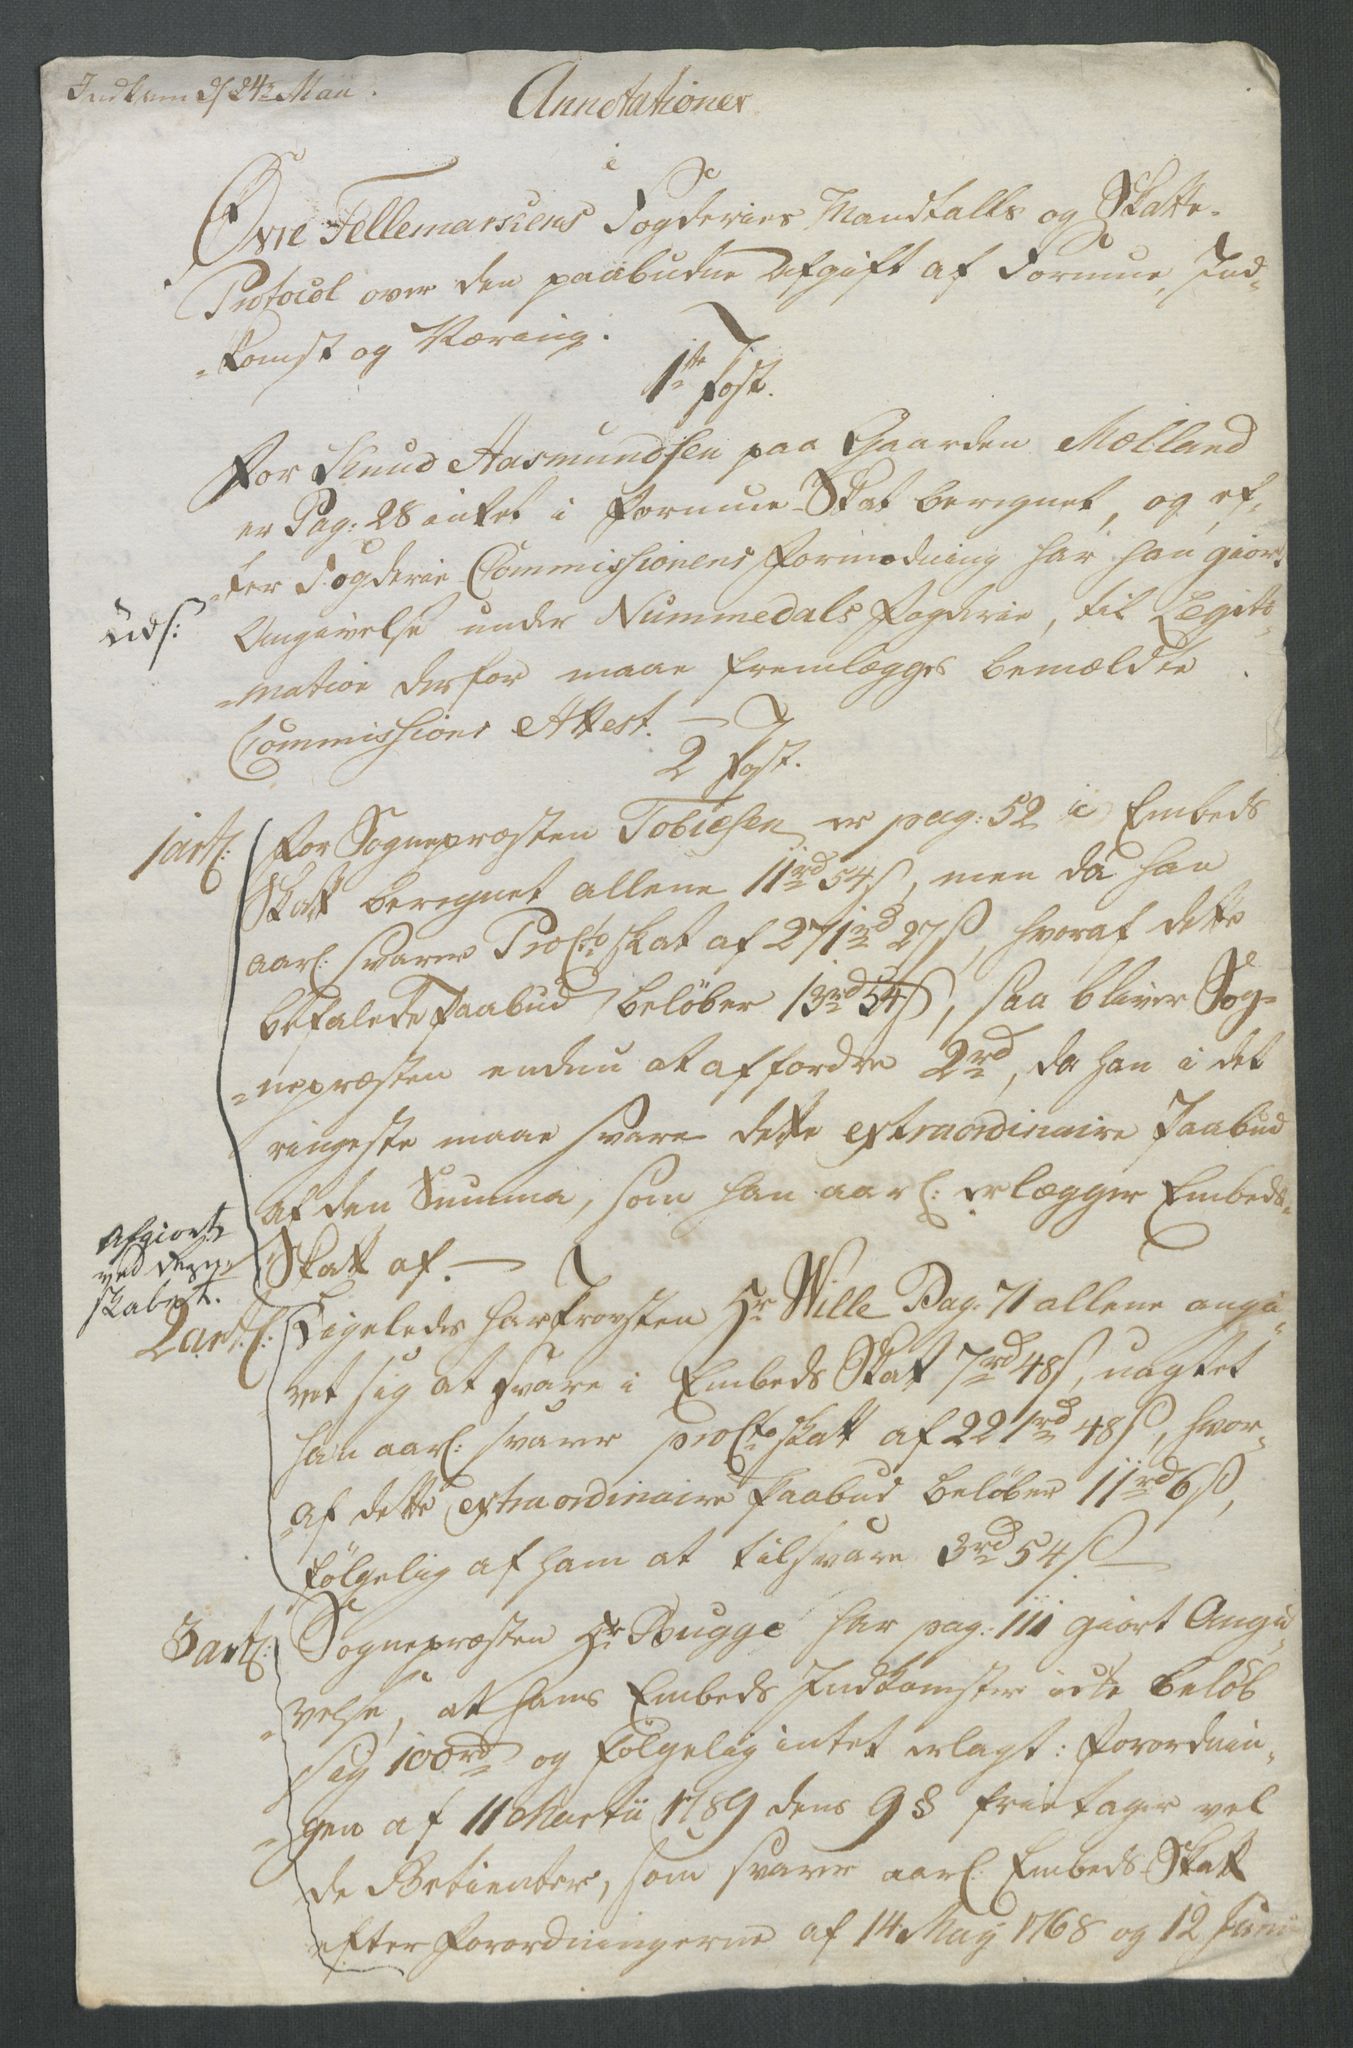 Indkom d. 24de Maii.
Annotationer
i
Øvre Tellemarkens Fogderies Mandtalls og Skatte-
Protocol over den paabudne Afgift af Formue, Ind-
-komst og Næring.
1te Post.
For Knud Aasmundsen paa Gaarden Mælland
er Pag: 28 intet i Formue-Skat beregnet, og ef-
-ter Fogderie Commissionens Formodning har han giort
Angivelse under Nummedals Fogderie, til Legiti-
-mation derfor maae fremlægges bemældte
Commissions Attest. —
Uds:
2 Post.
1 art:
For Sognepræsten Tobiesen er pag: 52 i Embeds
Skatt beregnet allene 11rd 54s, men da han
aarl: svarer Procto skat af 271rd 27s, hvoraf dette
befalede Paabud beløber 13rd 54s, saa bliver Sog-
-nepræsten endnu at affordre 2rd, da han i det
ringeste maae svare dette extraordinaire Paabud
af den Summa, som han aarl: erlægger Embeds-
Skatt af. —
Afgiort
ved Regn-
skabet.
2 art:
Ligeledes har Provsten Hr Wille Pag: 71 allene angi-
vet sig at svare i Embeds Skat 7rd 48s, uagtet
han aarl: svarer procto skatt af 221rd 48s, hvor-
-af dette extraordinaire Paabud beløber 11rd 6s,
følgelig af ham at tilsvare 3rd 54s
3 art:
Sognepræsten Hr Bugge har pag: 111 giort Angi-
-velse, at hans Embeds Indkomster icke beløb
sig 100rd og følgelig intet erlagt: Forordnin-
-gen af 11 Martii 1789 dens 9 § frietager vel
de Betienter, som svarer aarl: Embeds-Skatt
efter Forordningerne af 14 May 1768 og 12 Junii